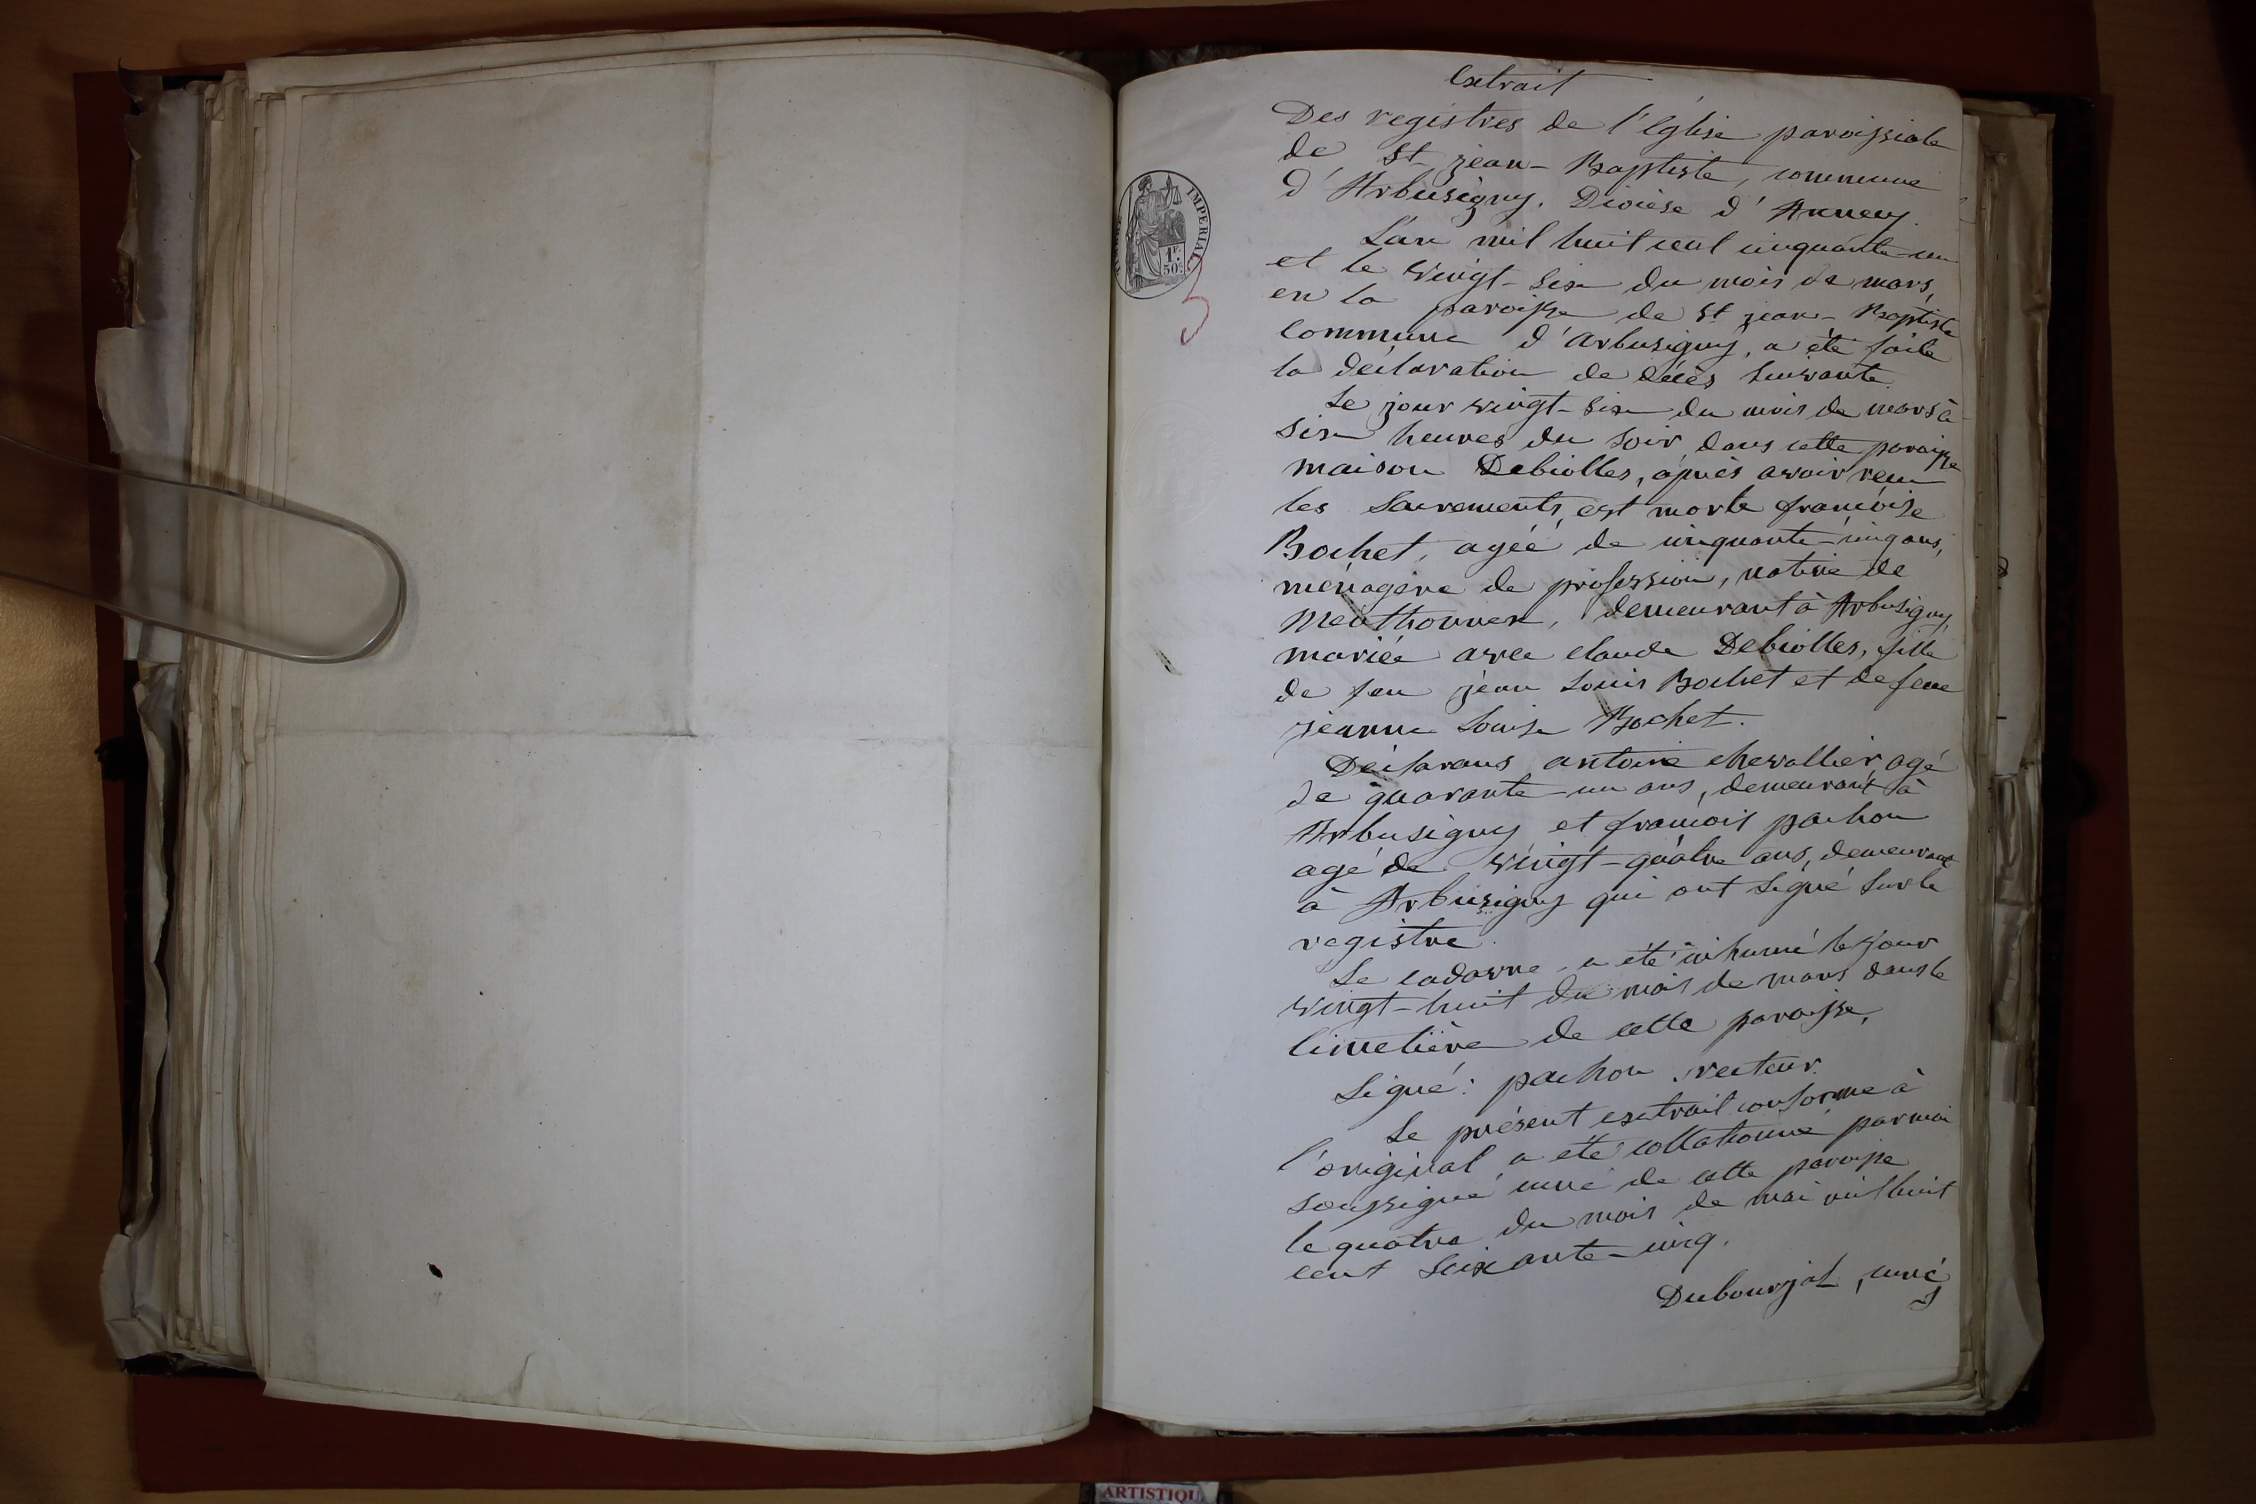 Extrait
Des registres de l'Eglise paroissiale
de St jean-Baptiste, commune
d'Arbusigny. Diocèse d'Annecy.
L'an mil huit cent cinquante-un
et le vingt-six du mois de mars,
en la paroisse de St jean-Baptiste
commune d'Arbusigny, a été faite
la déclaration de décès suivante
Le jour vingt-six du mois de mars à
six heures du soir, dans cette paroisse
maison Debiolles, après avoir reçu
les Sacrements, est morte françoise
Bochet, agée de cinquante-cinq ans,
ménagère de profession, native de
Menthonnex, demeurant à Arbusigny,
mariée avec claude Debiolles, fille
de feu jean Louis Bochet et de feue
jeanne Louise Bochet.
Déclarans antoine chevallier agé
de quarante-un ans, demeurant à
Arbusigny et françois pachon
agé de vingt-quatre ans, demeurant
à Arbusigny qui ont signé sur le
registre.
Le cadavre a été inhumé le jour
vingt-huit du mois de mars dans le
Cimetière de cette paroisse,
Signé: pachon, recteur.
Le présent extrait conforme à
l'original a été collationné par moi
soussigné curé de cette paroisse
le quatre du mois de mai mil huit
cent soixante-cinq.
Dubourjal, curé
IMPERIAL
1F.
50C.
5
ARTISTIQU